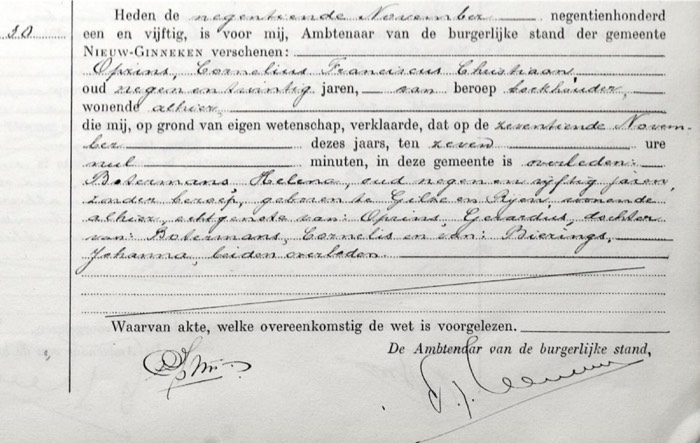 Heden de negentiende November negentienhonderd
30 een en vijftig, is voor mij, Ambtenaar van de burgerlijke stand der gemeente
NIEUW-GINNEKEN verschenen:
Oprins, Cornelius Franciscus Christiaan,
oud negen en twintig jaren, van beroep boekhouder,
wonende alhier,
die mij, op grond van eigen wetenschap, verklaarde, dat op de zeventiende Novem-
ber dezes jaars, ten zeven ure
nul minuten, in deze gemeente is overleden:
Botermans, Helena, oud negen en vijftig jaren,
zonder beroep, geboren te Gilze en Ryen, wonende
alhier, echtgenote van: Oprins, Gerardus, dochter
van: Botermans, Cornelis en van: Bierings,
Johanna, beiden overleden.
Waarvan akte, welke overeenkomstig de wet is voorgelezen.
De Ambtenaar van de burgerlijke stand,